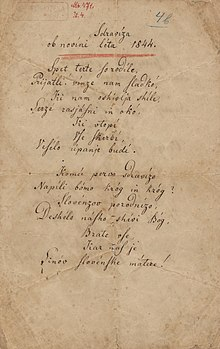 48
Sdraviza
ob novini léta 1844.
Spet terte so rodile,
Prijatli! vinze nam sladko,
Ki nam oshivlja shile,
Serze rasjasni in oko.
Ki utopi
Vse skerbi,
Veselo upanje budi.
Komú pervo sdravizo
Napili bómo króg in króg?
Slovenzov porodnizo,
Deshélo násho shivi Bóg,
Brate vse
Kar nas je
Sinov slovenshe matere!